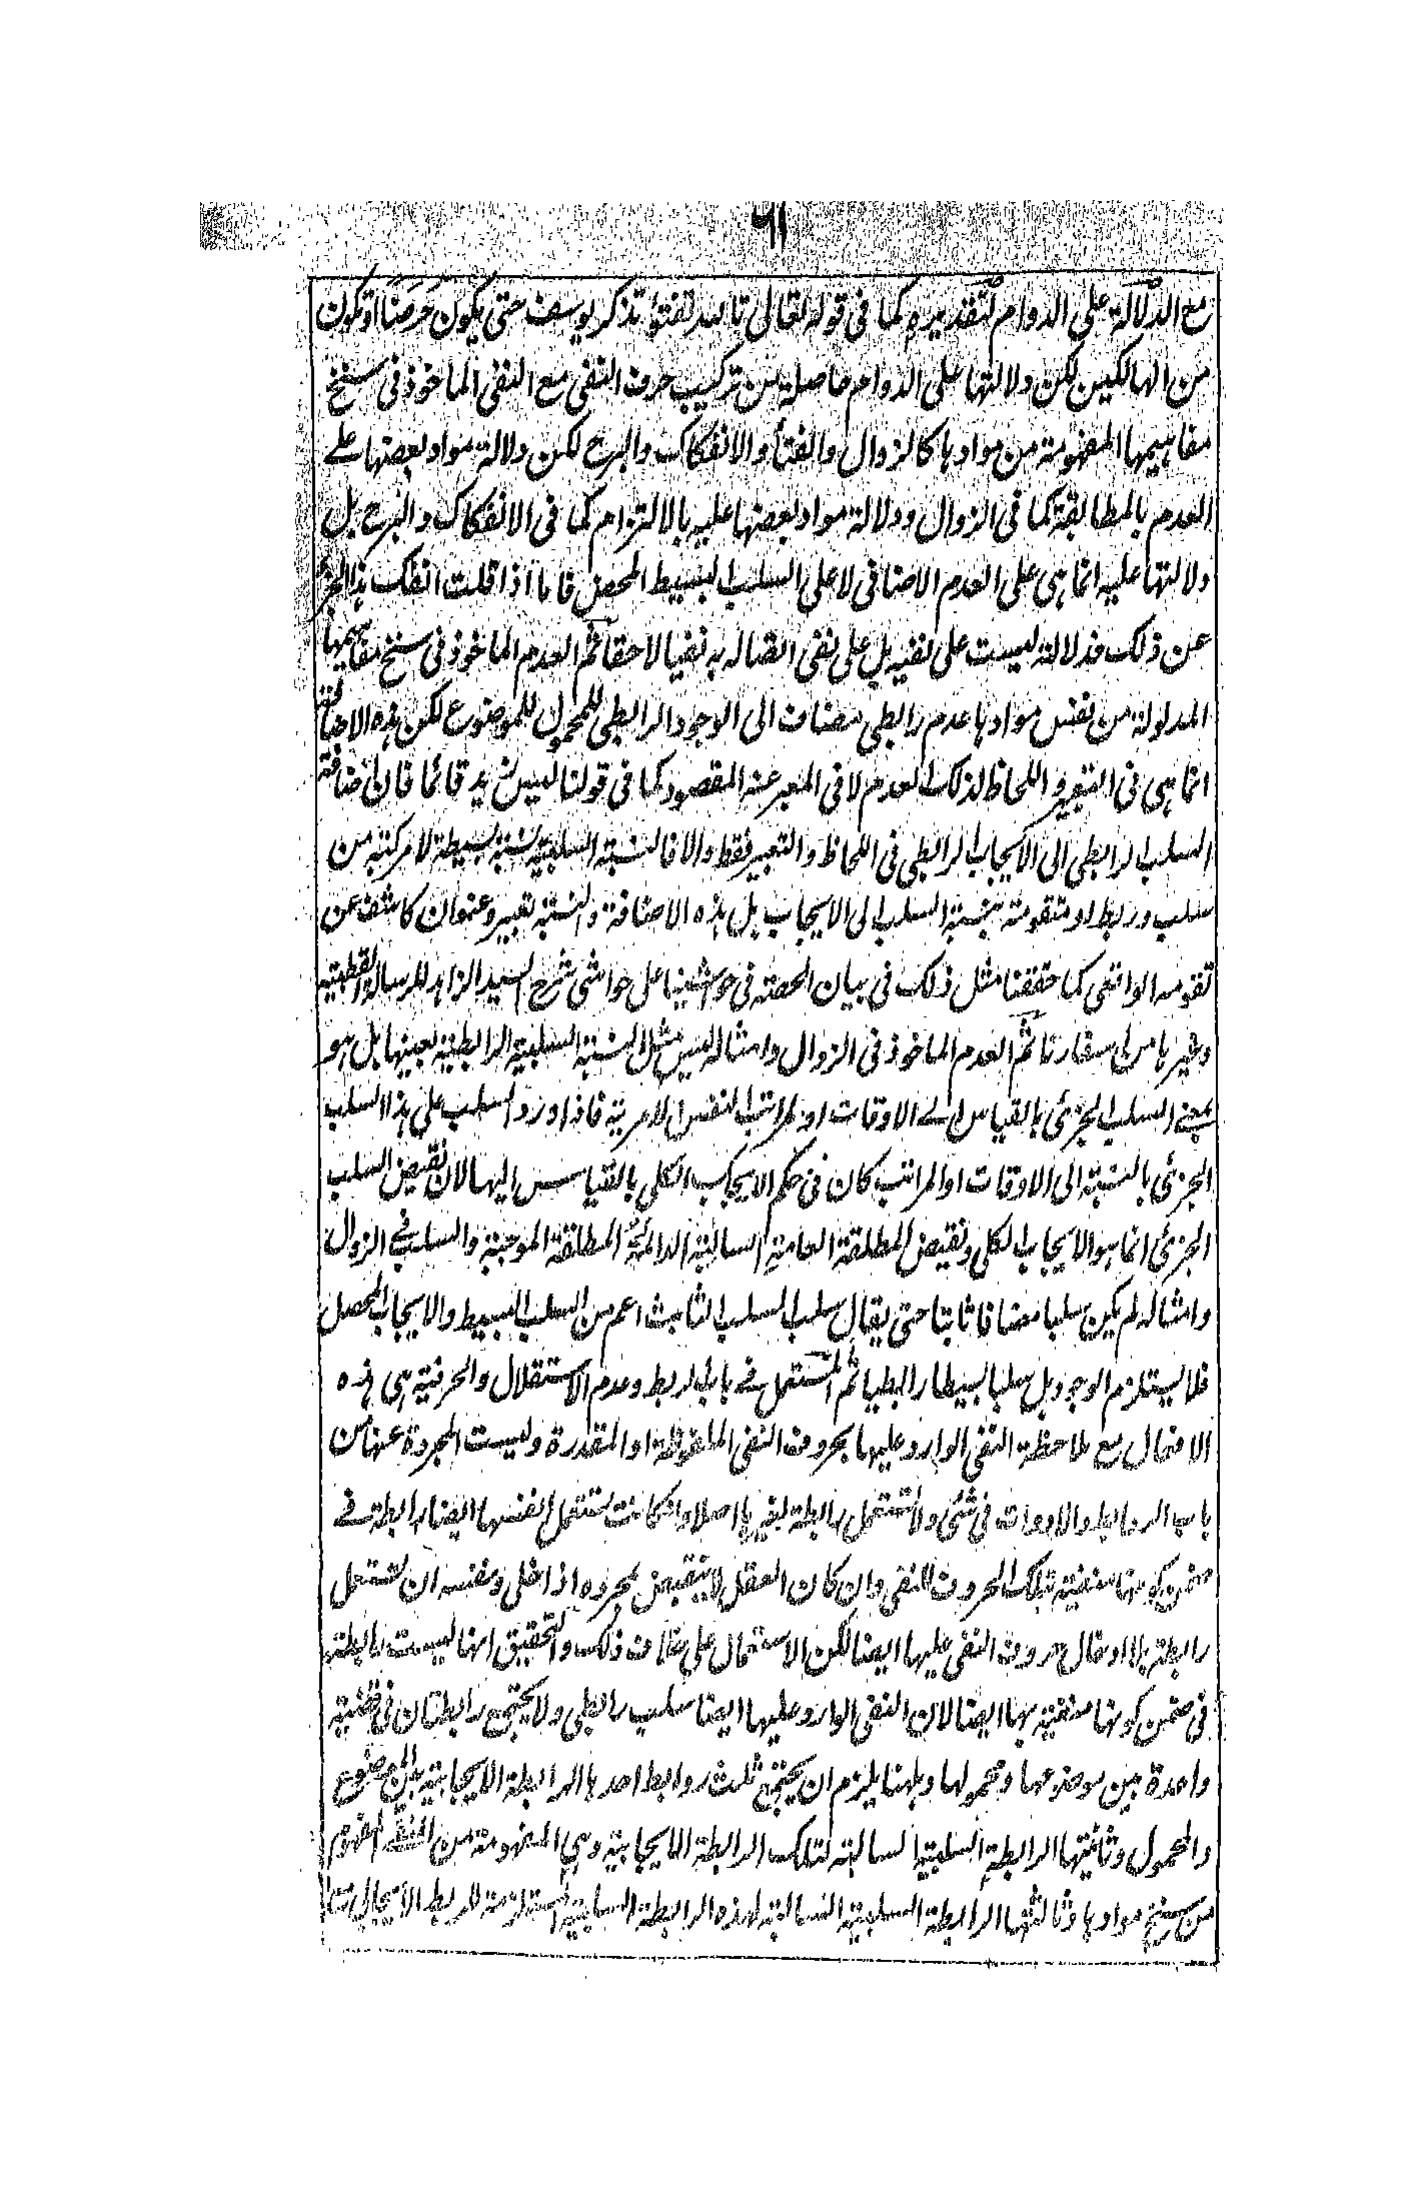 ٦١
مع الدلالة على الدوام لتقديره كما فى قوله تعالى تالله تفتؤ تذكر يوسف حتى يكون حرضا او تكون
من الهالكين لكن دلالتها على الدوام حاصلة من تركيب حرف النفى مع النفى الماخوذ فى سنخ
مفاهيمها المفهومة من موادها كالزوال والفتأ والانفكاك والبرح لكن دلالة مواد بعضها على
العدم بالمطابقة كما فى الزوال ودلالة مواد بعضها عليه بالالتزام كما فى الانفكاك والبرح بل
دلالتها عليه انما هى على العدم الاضافى لا على السلب البسيط المحض فاما اذا قلت انفك هذا الجزء
عن ذلك فدلالته ليست على نفيه بل على نفى اتصاله به نفيا لاحقا ثم العدم الماخوذ فى سنخ مفاهيمها
المدلولة من نفس موادها عدم رابطى مضاف الى الوجود الرابطى للمحمول للموضوع لكن هذه الاضافة
انما هى فى التعبير واللحاظ لذلك العدم لا فى المعبر عنه المقصود كما فى قولنا ليس زيد قائما فان اضافة
السلب الرابطى الى الايجاب الرابطى فى اللحاظ والتعبير فقط والا فالنسبة السلبية نسبة بسيطة لا مركبة من
سلب وربط او متقومة بنسبة السلب الى الايجاب بل هذه الاضافة والنسبة تعبير وعنوان كاشف عن
تقومه الواقعى كما حققنا مثل ذلك فى بيان الحصة فى حواشينا على حواشى شرح السيد الزاهد للرسالة القطبية
وغيرها من اسفارنا ثم العدم الماخوذ فى الزوال وامثاله ليس مثل النسبة السلبية الرابطية بعينها بل هو
بمعنى السلب الجزئى بالقياس الى الاوقات او المراتب النفس الامرية فاذا ورد السلب على هذا السلب
الجزئى بالنسبة الى الاوقات او المراتب كان فى حكم الايجاب الكلى بالقياس اليها لان نقيض السلب
الجزئى انما هو الايجاب الكلى ونقيض المطلقة العامة السالبة الدائمة المطلقة الموجبة والسلب فى الزوال
وامثاله لم يكن سلبا مضافا ثابتا حتى يقال سلب السلب الثابت اعم من السلب البسيط والايجاب المحصل
فلا يستلزم الوجود بل سلبا بسيطا رابطيا ثم المستعمل فى باب الربط وعدم الاستقلال والحرفية هى هذه
الافعال مع ملاحظة النفى الوارد عليها بحروف النفى الملفوظة او المقدرة وليست المجردة عنها من
باب الروابط والادوات فى شئ ولا تستعمل رابطة لغيرها اصلا وان كانت تستعمل انفسها ايضا رابطة فى
ضمن كونها منفية بتلك الحروف للنفى وان كان العقل لا ينقبض بمجرده اذا خلى ونفسه ان تستعمل
رابطة بلا ادخال حروف النفى عليها ايضا لكن الاستعمال على خلاف ذلك والتحقيق انها ليست رابطة
فى ضمن كونها منفية بها ايضا لان النفى الوارد عليها ايضا سلب رابطى ولا يجتمع رابطتان فى قضية
واحدة بين موضوعها ومحمولها وههنا يلزم ان يجتمع ثلث روابط احدها الرابطة الايجابية بين الموضوع
والمحمول وثانيتها الرابطة السلبية السالبة لتلك الرابطة الايجابية وهى المفهومة من النفى المفهوم
من سنخ موادها وثالثتها الرابطة السلبية السالبة لهذه الرابطة السلبية المستلزمة للربط الايجابى